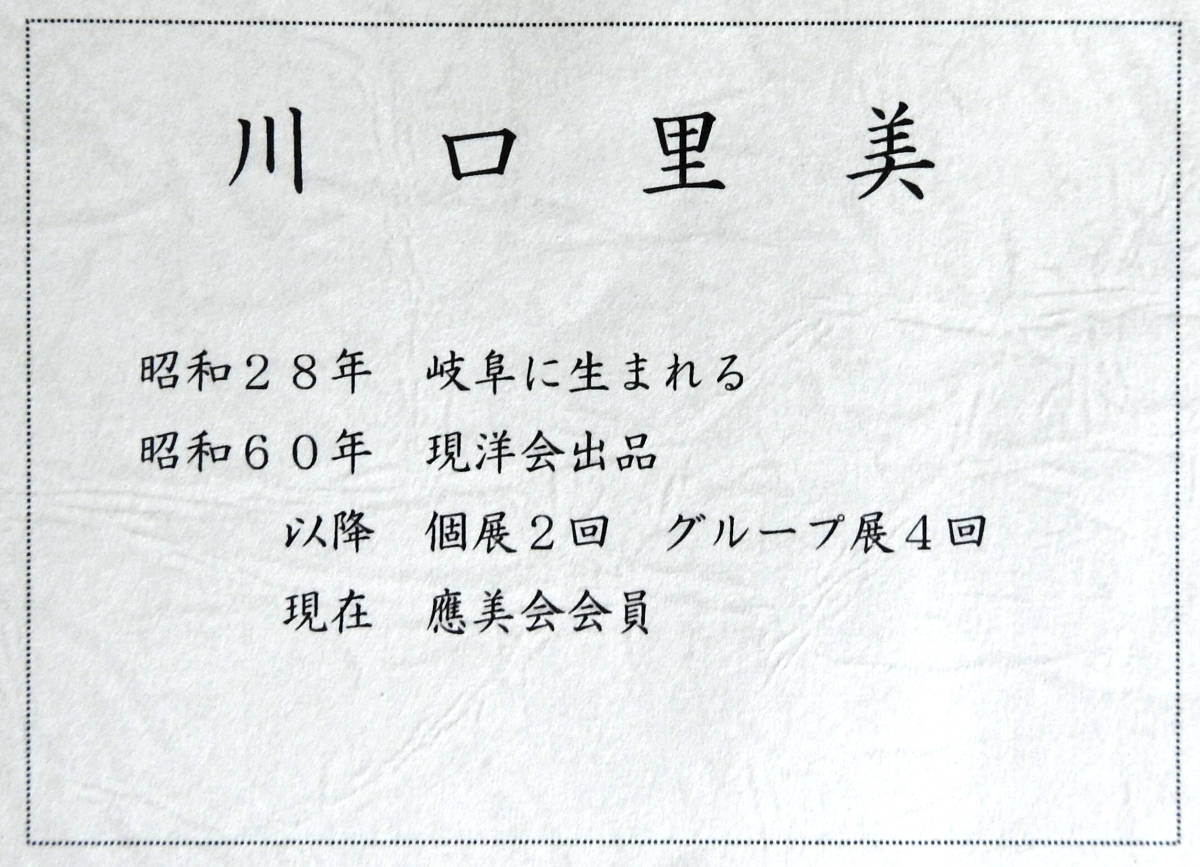 川口里美
昭和２８年　岐阜に生まれる
昭和６０年　現洋会出品
以降　個展２回　グループ展４回
現在　應美会会員